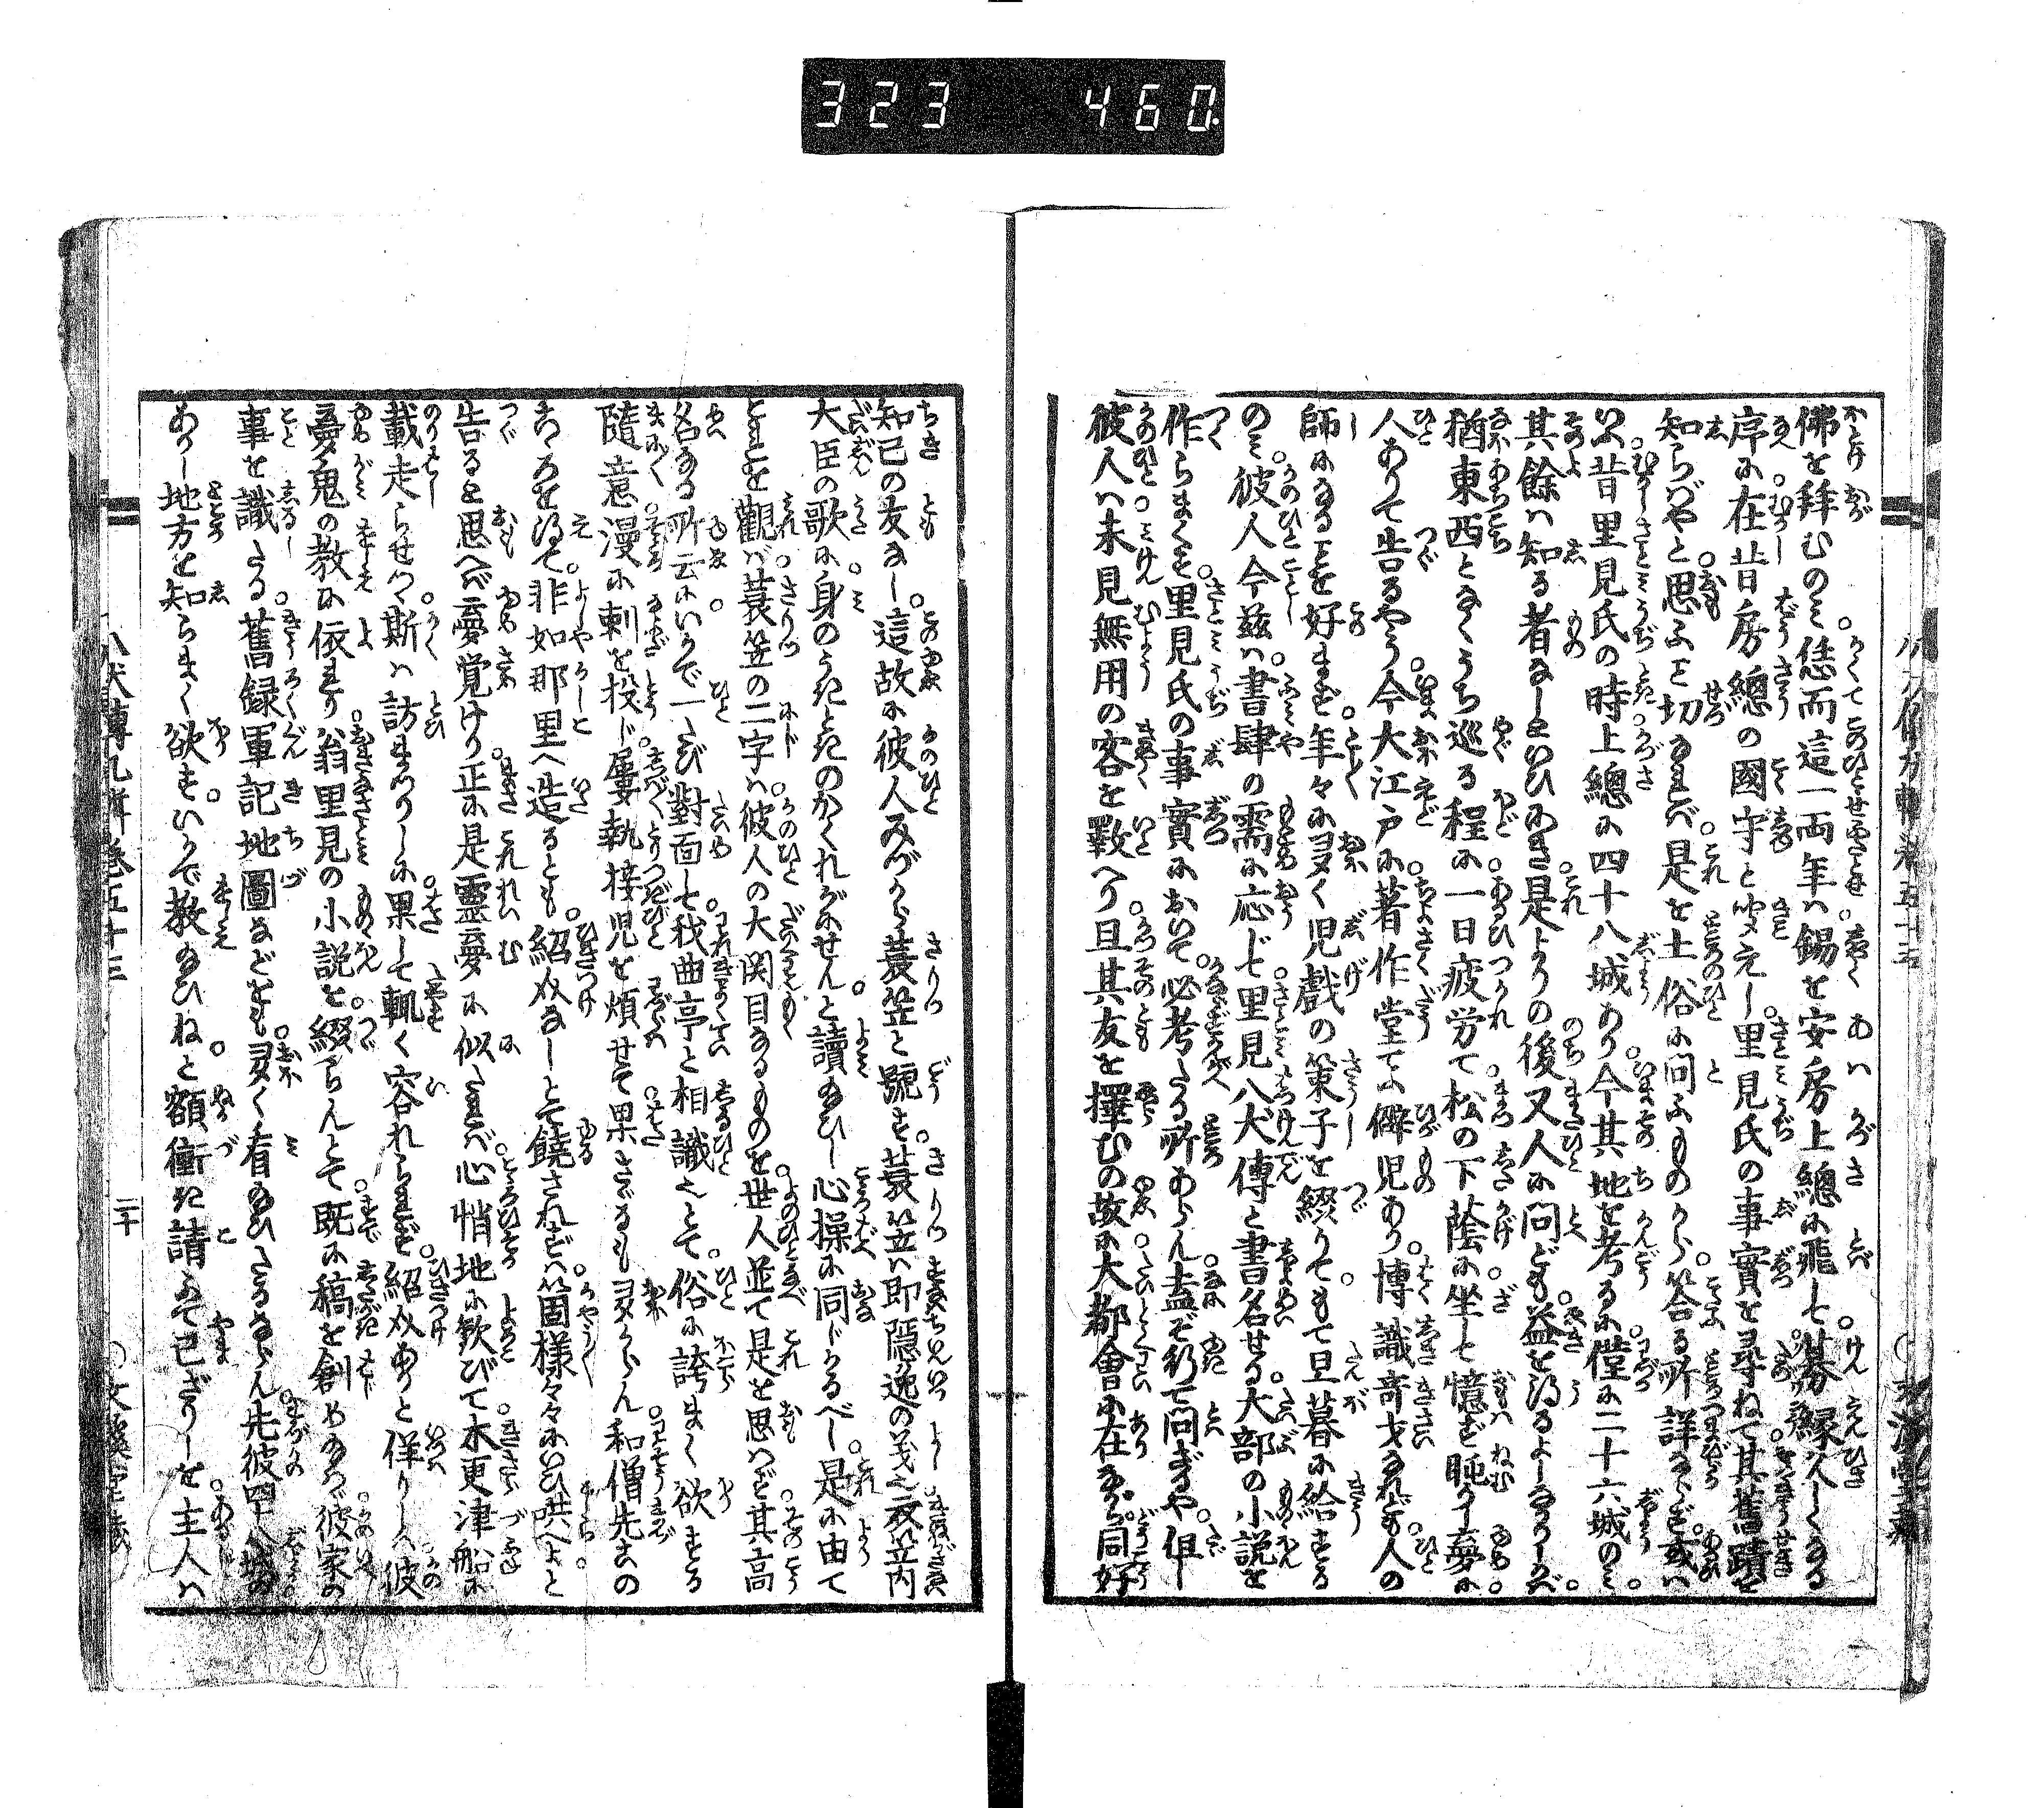 323 460
佛を拜むのミ恁而這一両年ハ錫を安房上總に飛して募縁久しくなる
序に在昔房總の國守と聞えし里見氏の事實を尋ねて其舊蹟を
知らバやと思ふこと切なれバ是を土俗に問ふものから答る所詳ならず或ハ
いふ昔里見氏の時上總に四十八城あり今其地を考るに僅に二十六城のミ
其餘ハ知る者なしといひにき是よりの後又人に問ども益を得るよしなかりしかバ
猶東西となくうち巡る程に一日疲労て松の下蔭に坐して憶ず睡りし夢に
人ありて告るやう今大江戸に著作堂てふ僻児あり博識竒才なれども人の
師になることを好まず年々に多く児戯の策子を綴りてもて旦暮に給する
のミ彼人今茲ハ書肆の需に応じて里見八犬傳と書名せる大部の小説を
作らまくす里見氏の事實において必考たる所あらん盍ぞ行て問ざるや但し
彼人ハ未見無用の客を斁へり且其友を擇むの故に大都會に在ながら同好
知己の友なし這故に彼人みづから蓑笠と號す蓑笠ハ即隠逸の義也衣笠内
大臣の歌に身のうきときのかくれがにせんと讀給ひし心操に同じかるべし是に由て
これを觀バ蓑笠の二字ハ彼人の大関目なるものを世人並て是を思ハず其高
名なる所云にいかで一たび對面して我曲亭と相識也とて俗に誇まく欲する
隨意漫に刺を投じ屡執接児を煩せて果さゞるも多からん和僧先この
こゝろを得て非如那里へ造るとも紹介なしとて饒されずハ箇様々々にいひ哄へよと
告ると思へバ夢覚けり正に是靈夢に似たれバ心悄地に歓びて木更津船に
載走らせつゝ斯ハ訪まつりしに果して輒く容れられず紹介ありと佯りしハ彼
夢鬼の教に依れり翁里見の小説を綴らんとて既に稿を創めなバ彼家の
事を識したる舊録軍記地圖などをも多く看給ひたるならん先彼四十八城の
ありし地方を知らまく欲すいかで教給ひねと額衝き請ふて已ざりしを主人ハ
八犬傳九輯卷五十三
二十
文溪堂藏